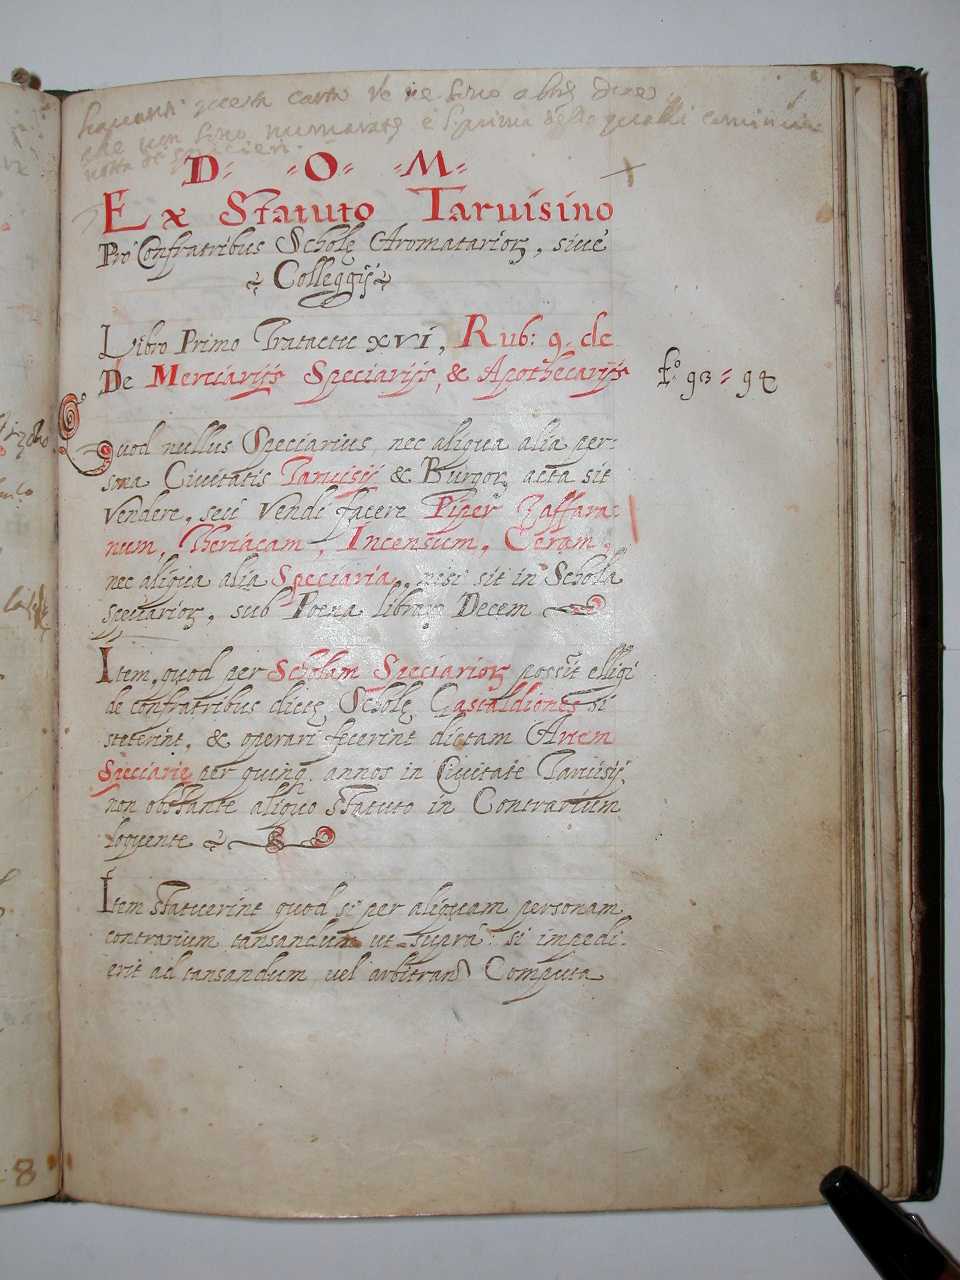 questa carta
che non sono numerate è
D= =O= =M=
Ex Statuto Taruisino
Pro Confratribus Scholę Aromatarioꝝ, siue
Colleggij
Libro Primo Tractatu XVI, Rub: 9. de
De Merciarijs Speciarijs, & Apothecarijs
fº: 93 = 94
Quod nullus Speciarius, nec aliqua alia per-
sona Ciuitatis Taruisij & Burgoꝝ acta sit
Vendere, seu Vendi facere Piper Zaffara:
num, Theriacam, Incensum, Ceram,
nec aliqua alia Speciaria, nisi sit in Schola
speciarioꝝ, sub Poena libraꝝ Decem
Item, quod per Scholam Speciarioꝝ possit eligi
de confratribus dictę Scholę Gastaldiones si
steterint, & operari fecerint dictam Artem
Speciarię per quinq. annos in Ciuitate Taruisij
non obstante aliquo Statuto in Contrarium
loquente
Item Statuerint quod si per aliquam personam
contrarium tansandum ut supra: si impedi-
erit ad tansandum uel arbitran Computa
8